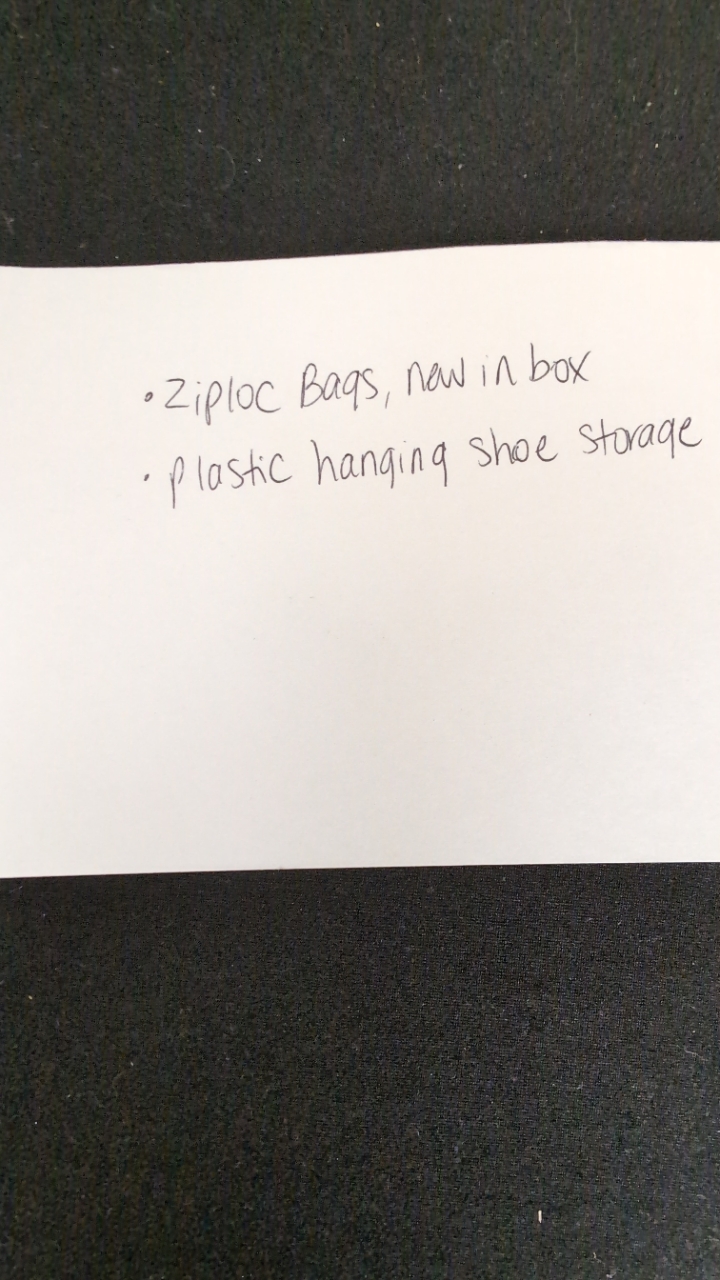 • Ziploc Bags, new in box
• plastic hanging shoe storage